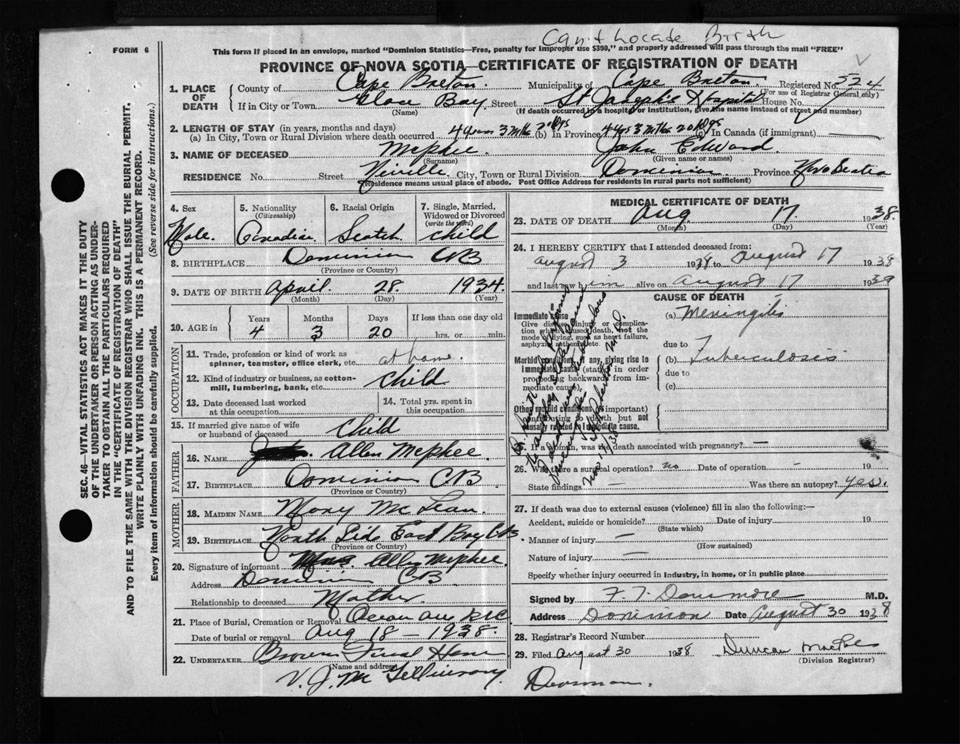 Can't locate Birth
FORM 6
This form if placed in an envelope, marked "Dominion Statistics—Free, penalty for improper use $300," and properly addressed will pass through the mail "FREE"
PROVINCE OF NOVA SCOTIA—CERTIFICATE OF REGISTRATION OF DEATH
1. PLACE OF DEATH County of Cape Breton Municipality of Cape Breton Registered No. 524
(For use of Registrar General only)
If in City or Town Glace Bay Street St Josephs Hospital House No.
(Name) (If death occurred in hospital or institution, give the name instead of street and number)
2. LENGTH OF STAY (in years, months and days)
(a) In City, Town or Rural Division where death occurred 4 yrs 3 mths 20 dys (b) In Province 4 yrs 3 mths 20 dys (c) In Canada (if immigrant)
3. NAME OF DECEASED McPhee John Edward
(Surname) (Given name or names)
RESIDENCE No. Street Neville City, Town or Rural Division Dominion Province Nova Scotia
(Residence means usual place of abode. Post Office Address for residents in rural parts not sufficient)
4. Sex Male
5. Nationality (Citizenship) Canadian
6. Racial Origin Scotch
7. Single, Married, Widowed or Divorced (write the word) Child
8. BIRTHPLACE Dominion CB
(Province or Country)
9. DATE OF BIRTH April 28 1934
(Month) (Day) (Year)
10. AGE in Years Months Days If less than one day old
4 3 20 hrs. or min.
OCCUPATION
11. Trade, profession or kind of work as spinner, teamster, office clerk, etc. at home
12. Kind of industry or business, as cotton-mill, lumbering, bank, etc. Child
13. Date deceased last worked at this occupation
14. Total yrs. spent in this occupation
15. If married give name of wife or husband of deceased Child
FATHER
16. Name Allen McPhee
17. Birthplace Dominion CB
(Province or Country)
MOTHER
18. Maiden Name Mary McLean
19. Birthplace North Side East Bay CB
(Province or Country)
20. Signature of informant Mrs. Allen McPhee
Address Dominion CB
Relationship to deceased Mother
21. Place of Burial, Cremation or Removal
Date of burial or removal Aug 18 — 1938
22. UNDERTAKER Brown Funeral Home
(Name and address)
MEDICAL CERTIFICATE OF DEATH
23. DATE OF DEATH Aug 17 1938
(Month) (Day) (Year)
24. I HEREBY CERTIFY that I attended deceased from:
August 3 1938 to August 17 1938
and last saw him alive on August 17 1938
CAUSE OF DEATH
Immediate cause
Give disease, injury or complication which caused death, not the mode of dying, such as heart failure, asphyxia, asthenia, etc.
(a) Meningitis
due to
Morbid conditions, if any, giving rise to immediate cause (stated in order proceeding backwards from immediate cause).
(b) Tuberculosis
due to
(c)
Other morbid conditions (if important) contributing to death but not causally related to immediate cause.
25. If a woman, was the death associated with pregnancy? —
26. Was there a surgical operation? no Date of operation — 19
State findings — Was there an autopsy? Yes.
27. If death was due to external causes (violence) fill in also the following:
Accident, suicide or homicide? — Date of injury — 19
(State which)
Manner of injury —
(How sustained)
Nature of injury —
Specify whether injury occurred in industry, in home, or in public place
Signed by M.D.
Address Dominion Date August 30 1938
28. Registrar's Record Number
29. Filed August 30 1938 Duncan
(Division Registrar)
SEC. 46—VITAL STATISTICS ACT MAKES IT THE DUTY OF THE UNDERTAKER OR PERSON ACTING AS UNDERTAKER TO OBTAIN ALL THE PARTICULARS REQUIRED IN THE "CERTIFICATE OF REGISTRATION OF DEATH" AND TO FILE THE SAME WITH THE DIVISION REGISTRAR WHO SHALL ISSUE THE BURIAL PERMIT.
WRITE PLAINLY WITH UNFADING INK. THIS IS A PERMANENT RECORD.
Every item of Information should be carefully supplied. (See reverse side for instructions.)